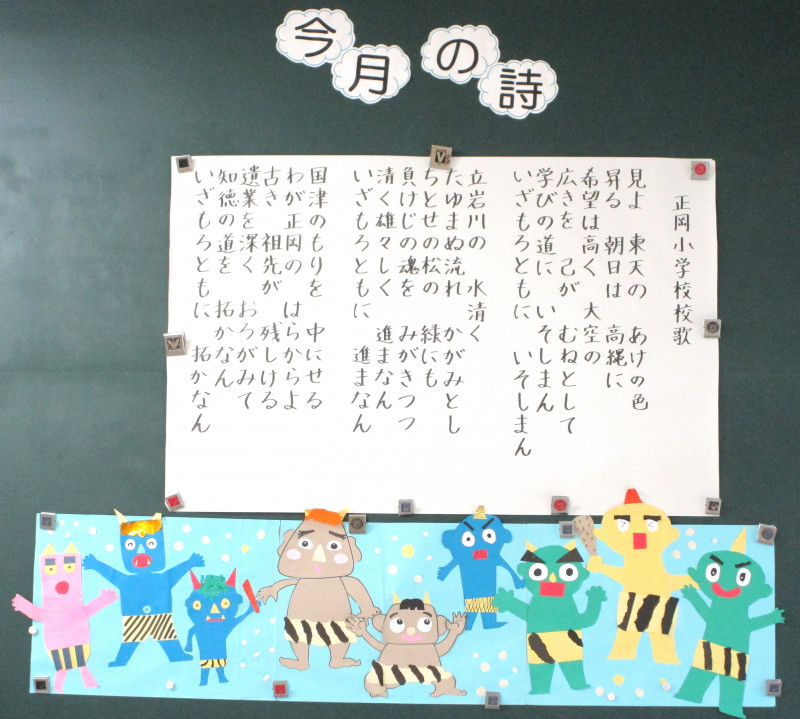 今月の詩
正岡小学校校歌
見よ 東天の あけの色
昇る 朝日は 高縄に
希望は高く 大空の
広きを 己が むねとして
学びの道に いそしまん
いざもろともに いそしまん
立岩川の 水清く
たゆまぬ流れ かがみとし
ちとせの松の 緑にも
負けじの魂を みがきつつ
清く雄々しく 進まなん
いざもろともに 進まなん
国津のもりを 中にせる
わが正岡の はらからよ
古き 祖先が 残しける
遺業を深く おろがみて
知徳の道を 拓かなん
いざもろともに 拓かなん